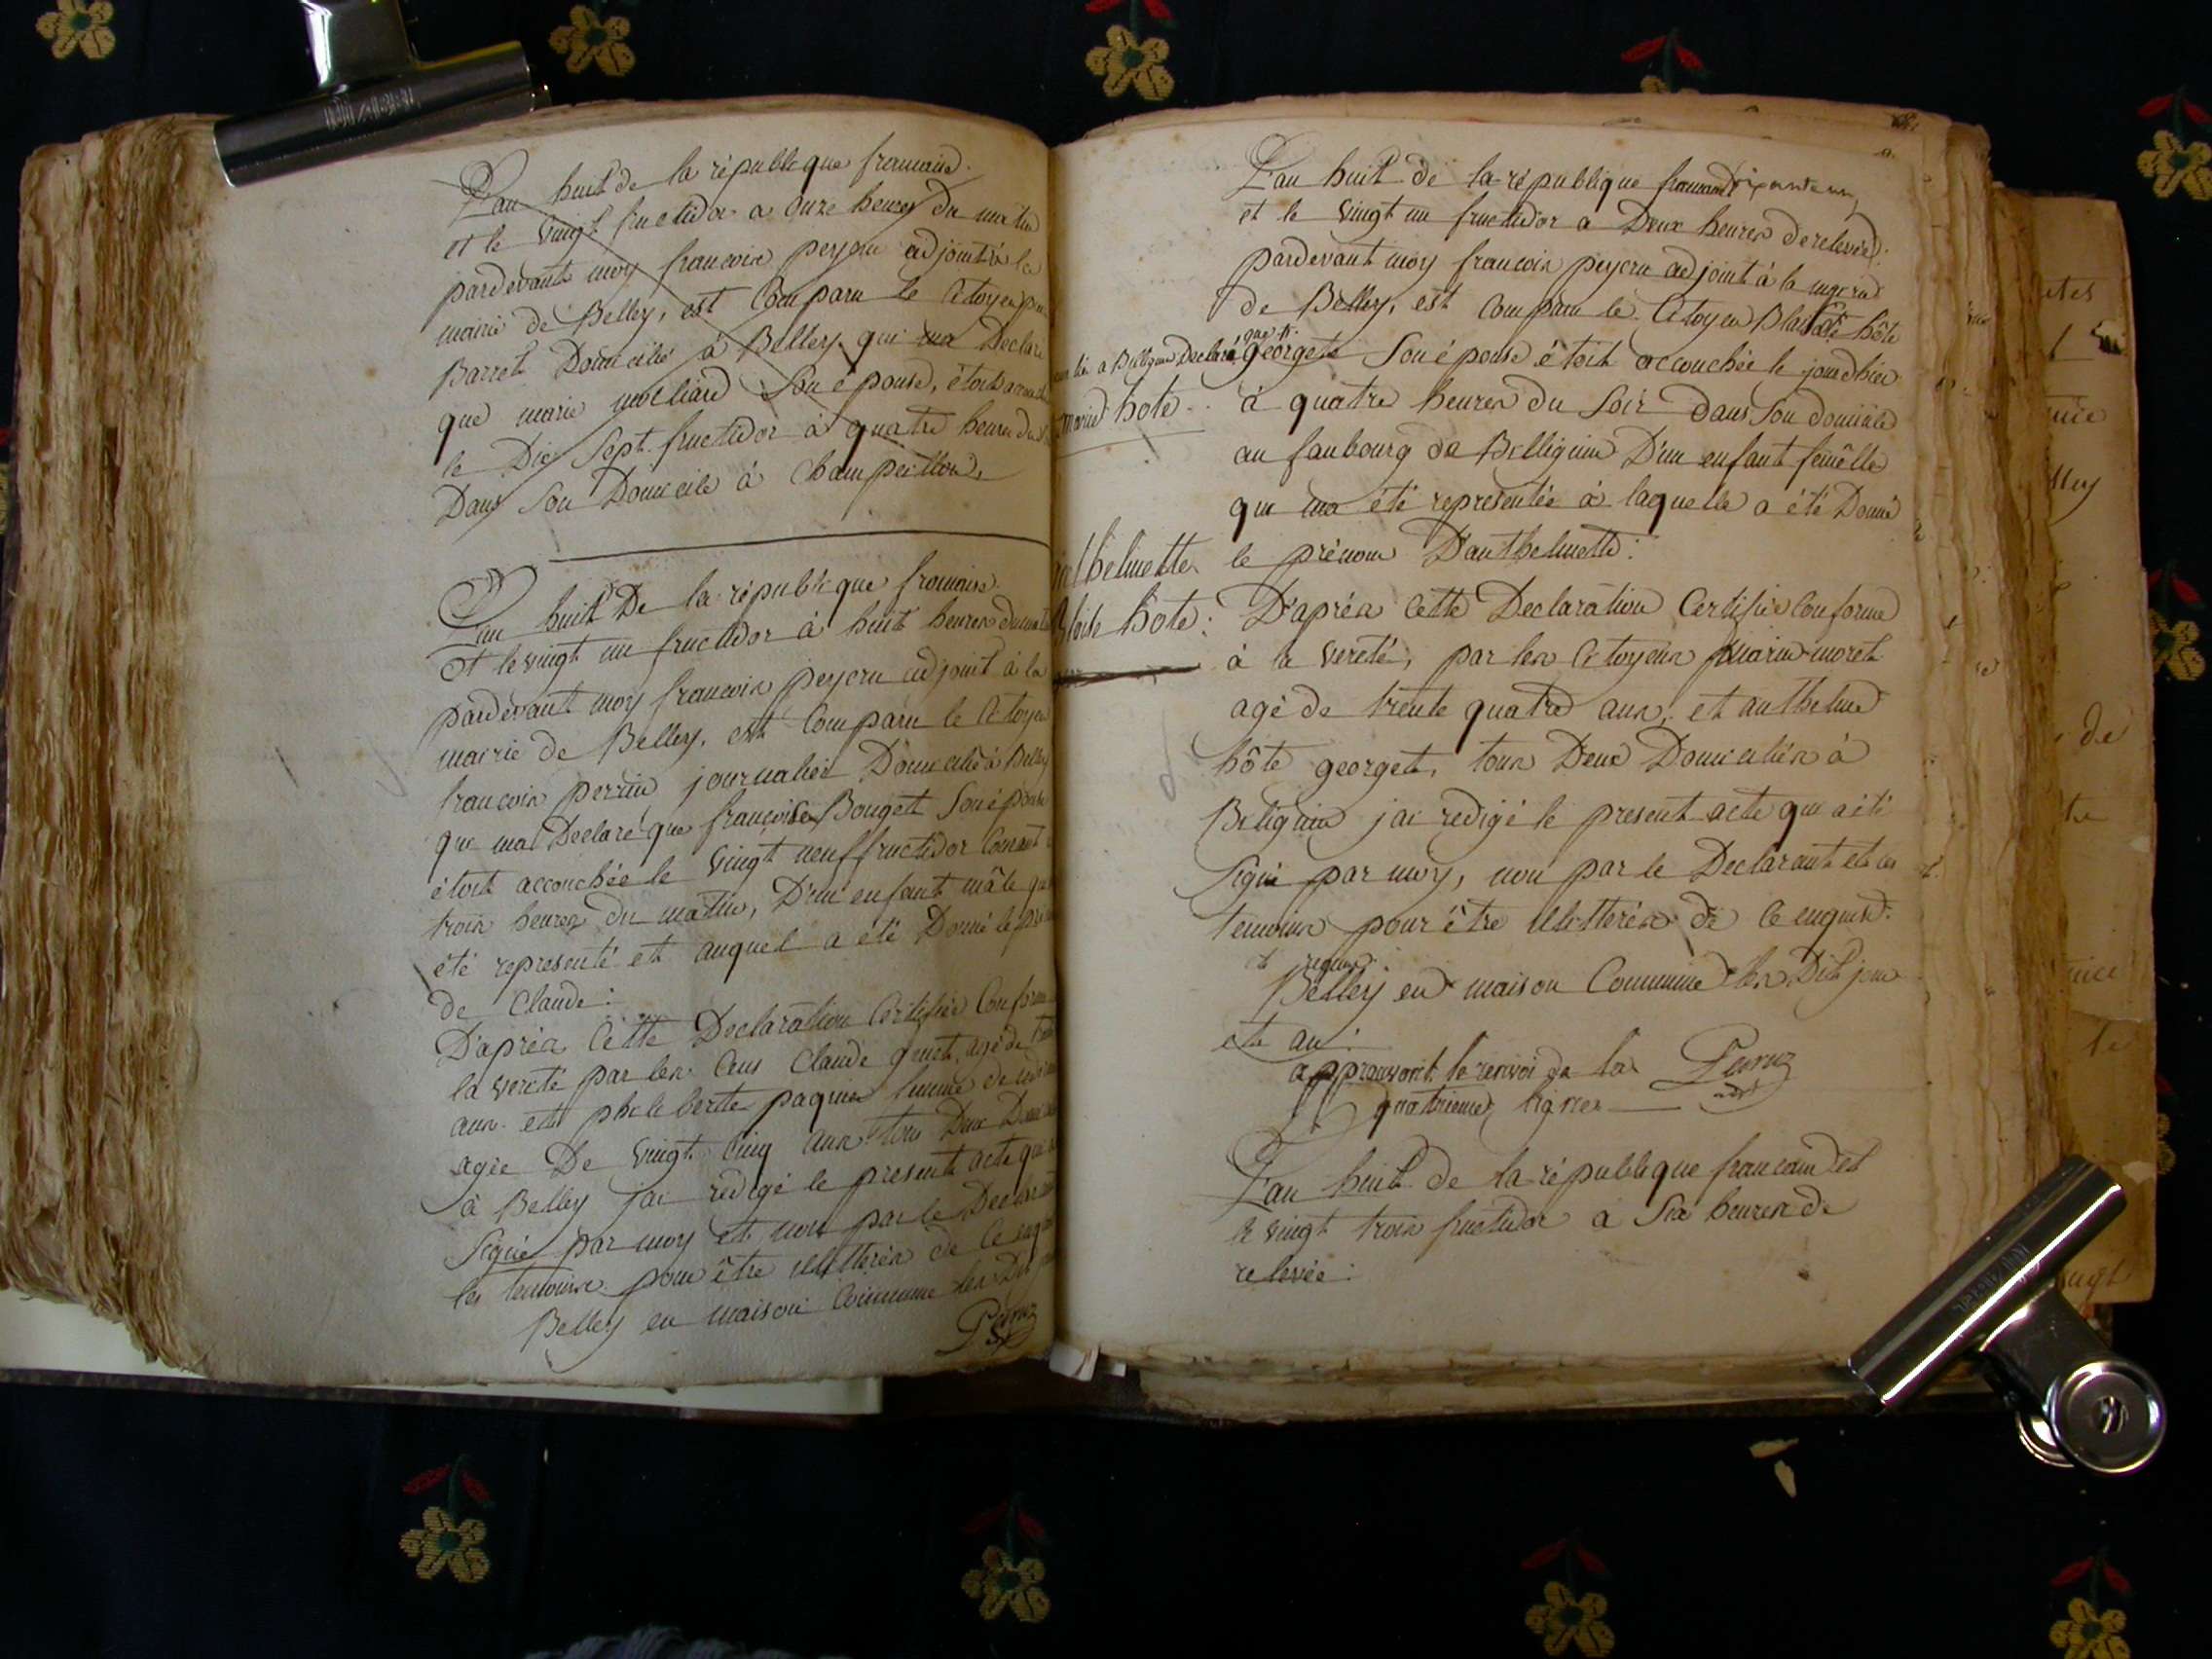 L'an huit de la république francaise
et le vingt fructidor a onze heures du matin
pardevant moy francois peyzru adjoint à la
mairie de Belley, est comparu le Citoyen
Barret Domicilié à Belley qui ma Declaré
que marie molliard son épouse, étoit
le Dix Sept fructidor à quatre heures du
Dans son Domicile à Champeillon,
L'an huit De la république francaise
et le vingt un fructidor à huit heures du matin
pardevant moy francois peyzru adjoint à la
mairie de Belley, est comparu le Citoyen
francois perrin journalier Domicilié à Belley
qui ma Declaré que francoise Bouget son épouse
étoit accouchée le vingt neuf fructidor Courant
trois heures du matin, D'un enfant mâle qui
été representé et auquel a été Donné le
de Claude :
D'après Cette Declaration Certifiée Conforme
la vereté par les Cens Claude gruet, agé de
ans et philiberte paquier femme de
agée De vingt cinq ans tous Deux
à Belley jai redigé le present acte qui
signé par moy et non par le Declarant
les temoins pour être illitterés de ce
Belley en maison Commune les Dit
L'an huit de la république francaise
et le vingt un fructidor a Deux heures de relevée :
pardevant moy francois peyzru adjoint à la mairie
de Belley, est comparu le Citoyen Blaise hôte
a Declaré que georgete son épouse étoit accouchée le jour d'hier
marie hote
à quatre heures du soir dans son domicile
au faubourg de Belliguin D'un enfant femêlle
qui ma été representée à laquelle a été Donné
le prénom D'anthelmette :
anthelmette
hote :
D'après Cette Declaration Certifiée Conforme
à la vereté, par les Citoyens marin moret
agé de trente quatre ans, et anthelme
hôte georget, tous Deux Domiciliés à
Beliguin jai redigé le present acte qui a été
signé par moy, non par le Declarant et les
temoins pour être illitterés de ce enquis
et requis
Belley en maison Commune les Dit jour
et an :
approuvant le renvoi de la
quatrieme ligne
L'an huit de la république francaise et
le vingt trois fructidor a Six heures de
relevée :